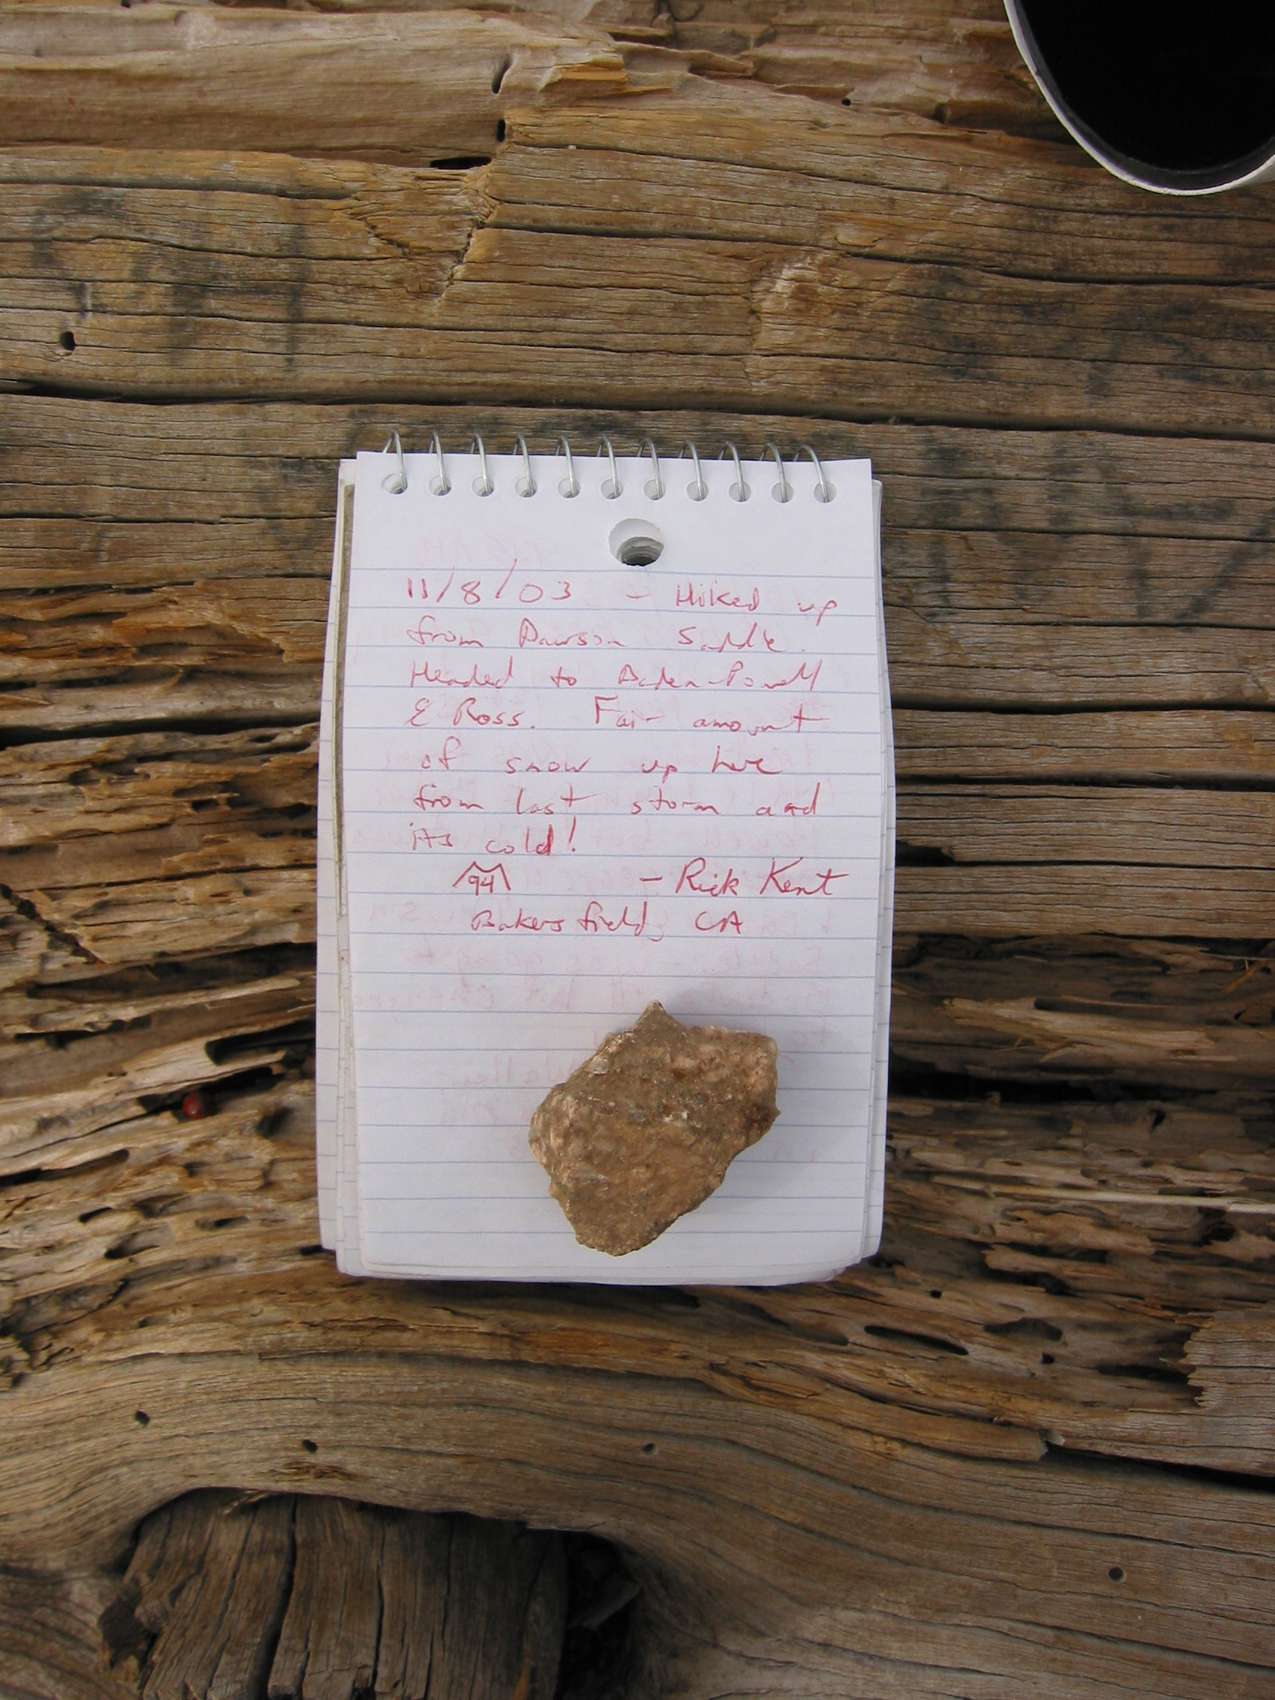 11/8/03 - Hiked up
from Dawson Saddle.
Headed to Baden-Powell
& Ross. Fair amount
of snow up here
from last storm and
its cold!
94 - Rick Kent
Bakersfield, CA